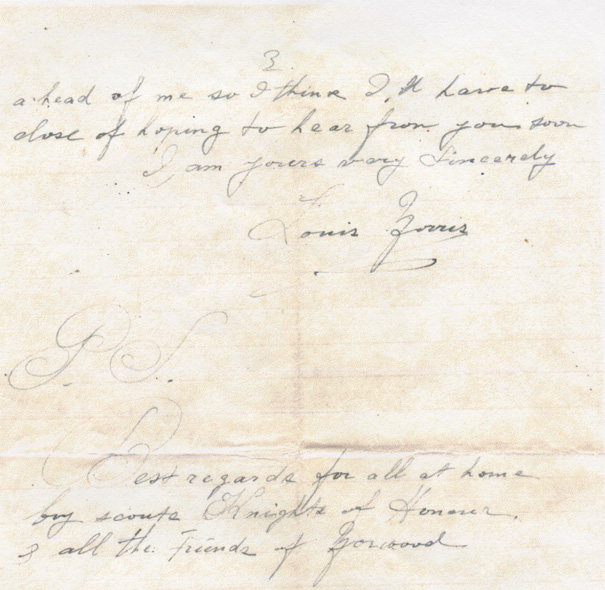 3.
a head of me so I think I,ll have to
close of hoping to hear from you soon
I, am yours vary Sincerely
Louis Norris
P. S.
Best regards for all at home
boy scouts Knights of
& all the friends of Norwood